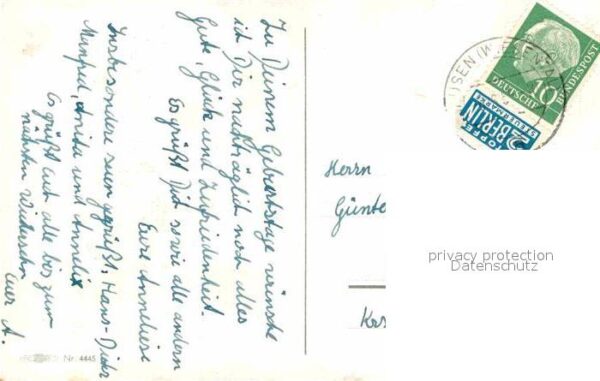 Zu Deinem Geburtstage wünsche
ich Dir nachträglich noch alles
Gute, Glück und Zufriedenheit.
Es grüßt Dich sowie alle andern
Eure Anneliese
Insbesondere seien gegrüßt, Hans-Dieter
Manfred, Anita und Annelie
Es grüßt euch alle bis zum
nächsten Wiedersehn
Euer A.
Nr. 4445
DEUTSCHE
BUNDESPOST
10
NOTOPFER
2 BERLIN
STEUERMARKE
Herrn
Günte
privacy protection
Datenschutz
Krs